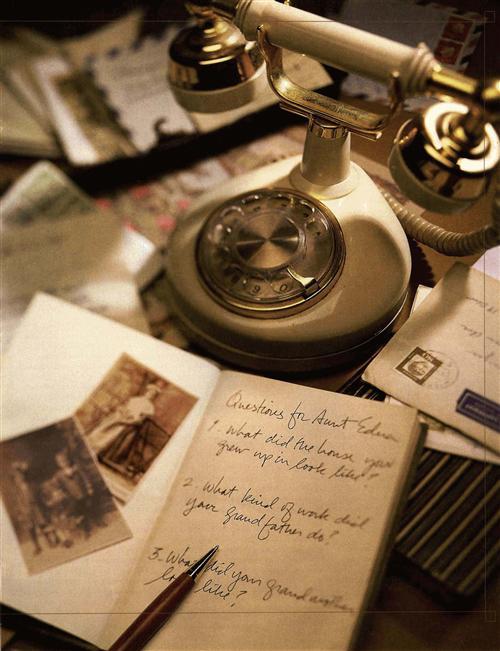 Questions for Aunt Edna
1. What did the house you
grew up in look like?
2. What kind of work did
your grandfather do?
3. What did your grandmother
look like?